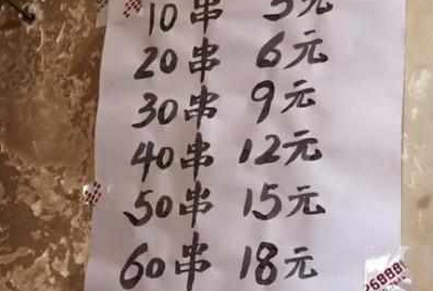 10串 3元
20串 6元
30串 9元
40串 12元
50串 15元
60串 18元
268888